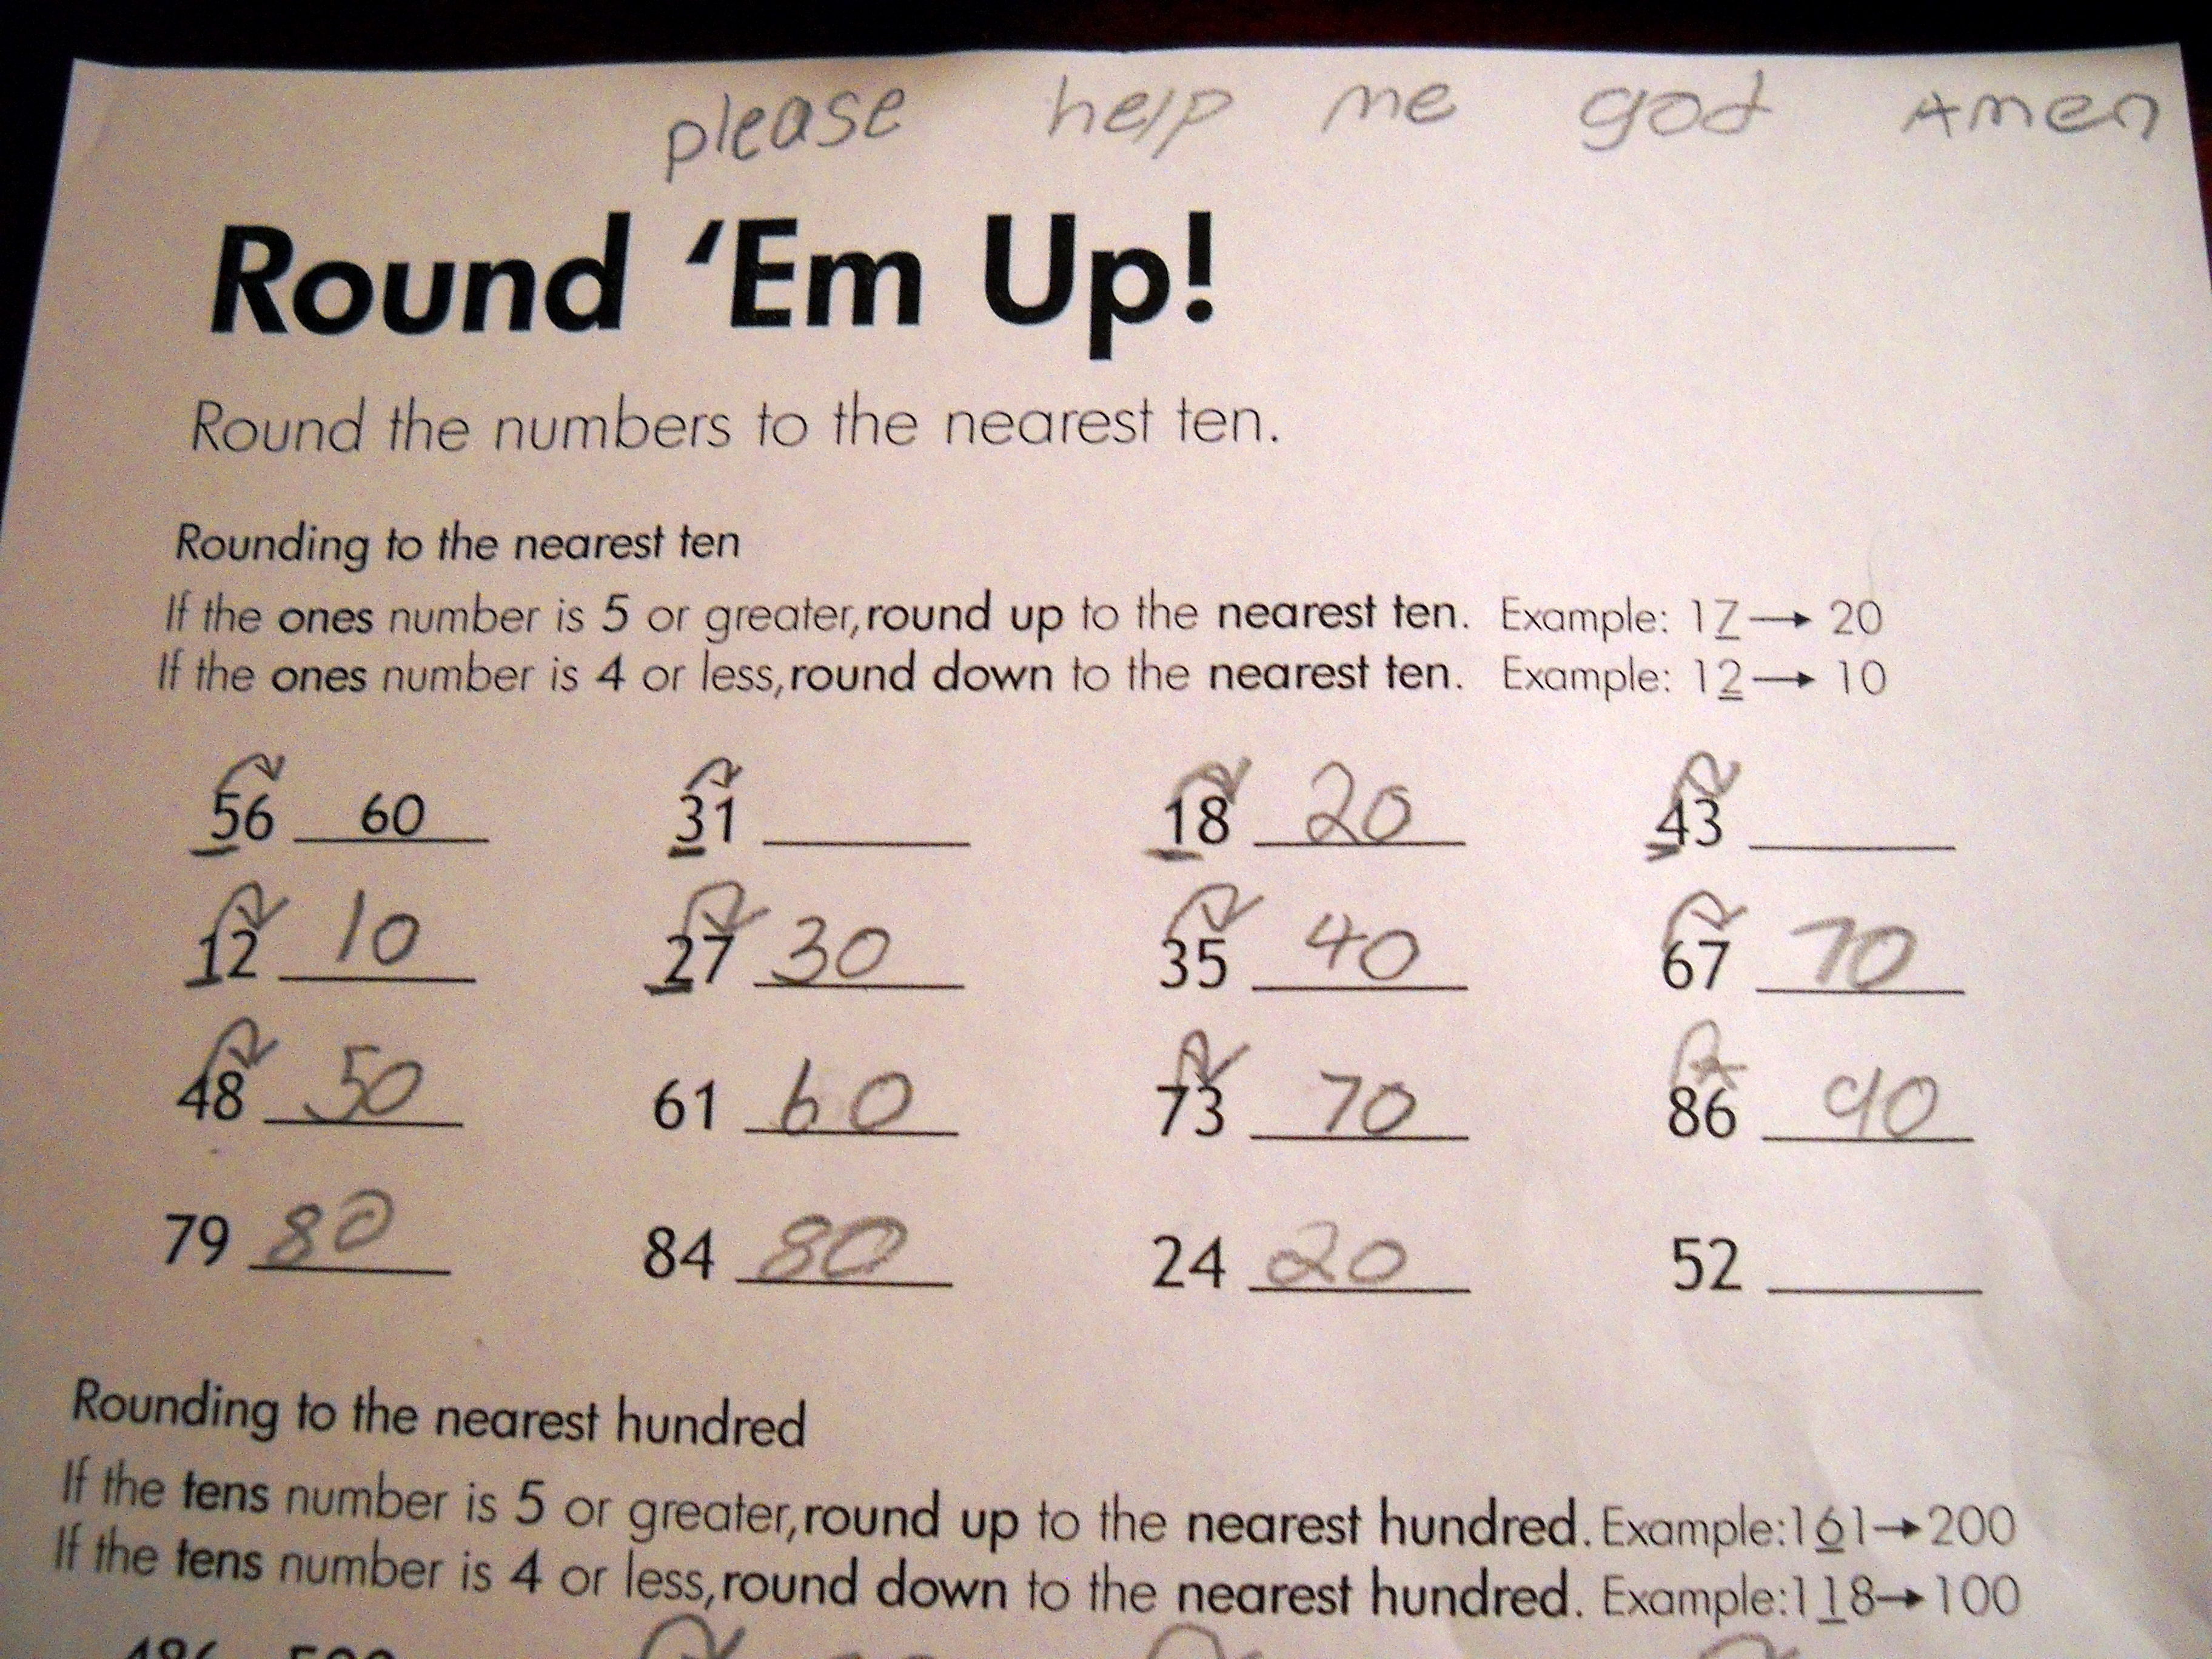 please help me god Amen
Round 'Em Up!
Round the numbers to the nearest ten.
Rounding to the nearest ten
If the ones number is 5 or greater, round up to the nearest ten. Example: 17→20
If the ones number is 4 or less, round down to the nearest ten. Example: 12→10
56 60 31 18 20 43
12 10 27 30 35 40 67 70
48 50 61 60 73 70 86 90
79 80 84 80 24 20 52
Rounding to the nearest hundred
If the tens number is 5 or greater, round up to the nearest hundred. Example: 161→200
If the tens number is 4 or less, round down to the nearest hundred. Example: 118→100
486 500